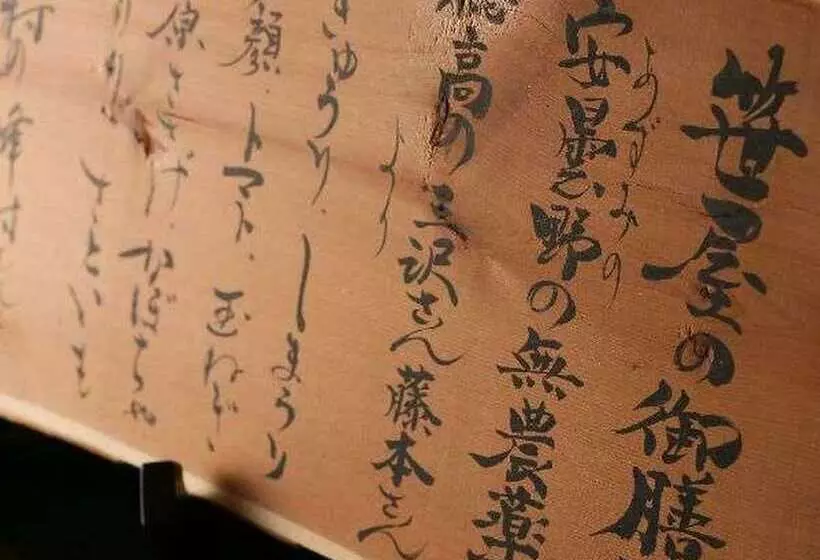 笹屋の御膳
あずみの
安曇野の無農薬
穂高の三沢さん藤本さん
より
きゅうり、しまうり
顔、トマト、玉ねぎ、
原ささげ、かぼちゃ
さといも
村の峰村さん